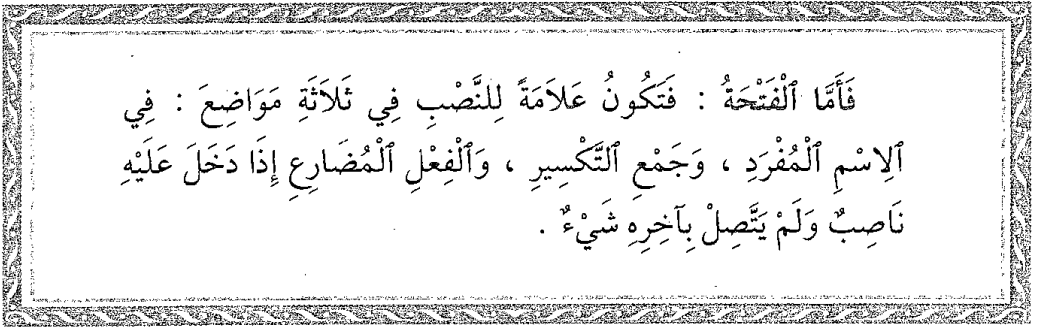 فَأَمَّا ٱلْفَتْحَةُ : فَتَكُونُ عَلَامَةً لِلنَّصْبِ فِي ثَلَاثَةِ مَوَاضِعَ : فِي
ٱلِاسْمِ ٱلْمُفْرَدِ ، وَجَمْعِ ٱلتَّكْسِيرِ ، وَٱلْفِعْلِ ٱلْمُضَارِعِ إِذَا دَخَلَ عَلَيْهِ
نَاصِبٌ وَلَمْ يَتَّصِلْ بِآخِرِهِ شَيْءٌ .